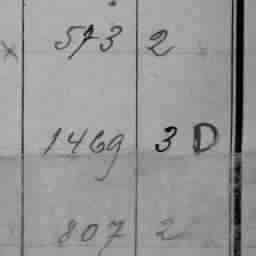 x 573 2
1469 3 D
807 2